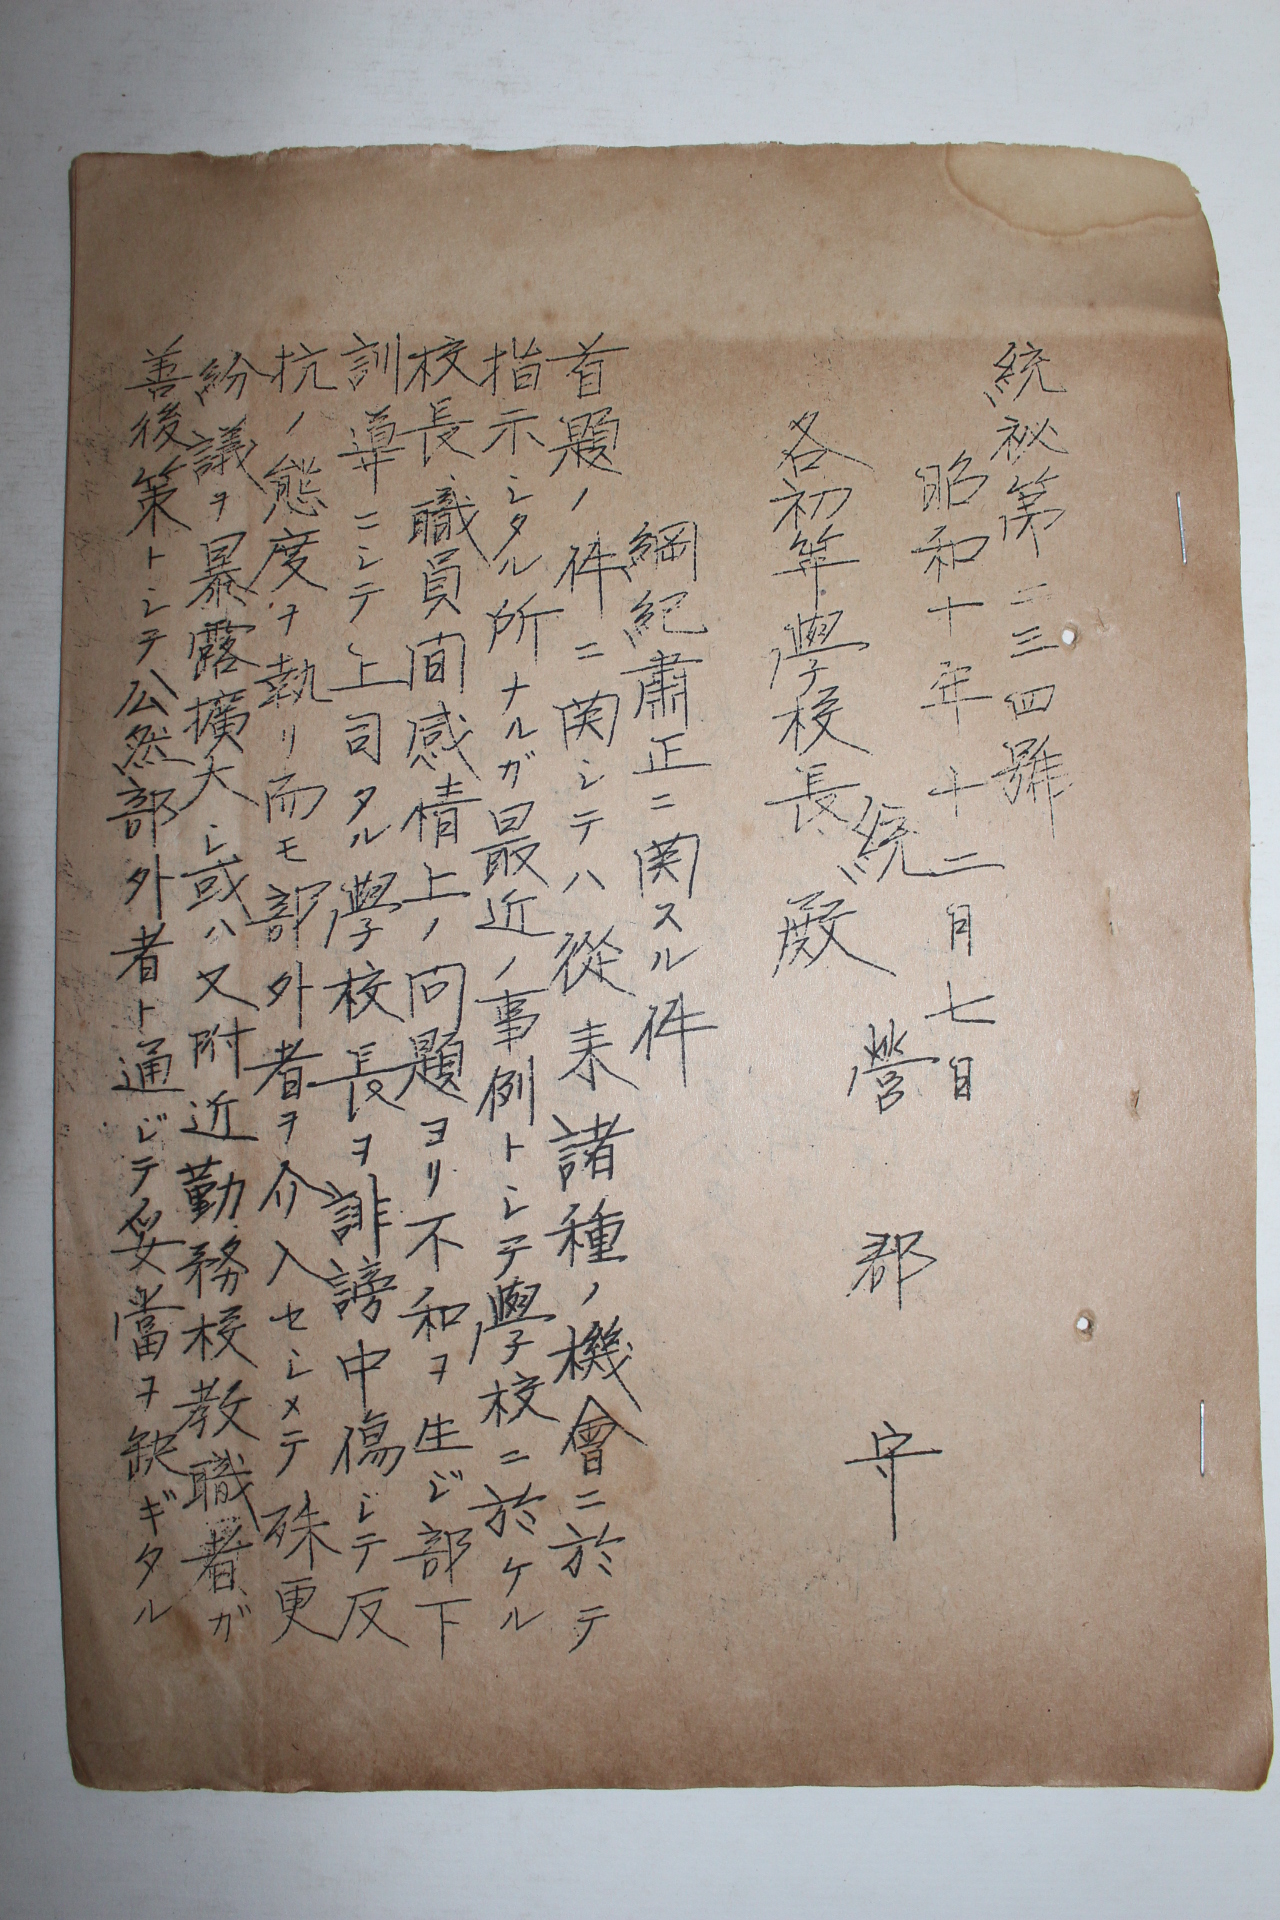 統秘第二三四號
昭和十年十二月七日
統營郡守
各初等學校長殿
綱紀肅正ニ関スル件
首題ノ件ニ関シテハ從来諸種ノ機會ニ於テ
指示シタル所ナルガ最近ノ事例トシテ學校ニ於ケル
校長、職員間感情上ノ問題ヨリ不和ヲ生ジ部下
訓導ニシテ上司タル學校長ヲ誹謗中傷シテ反
抗ノ態度ヲ執リ而モ部外者ヲ介入セシメテ殊更
紛議ヲ暴露擴大シ或ハ又附近勤務校教職者ガ
善後策トシテ公然部外者ト通ジテ妥當ヲ缺ギタル